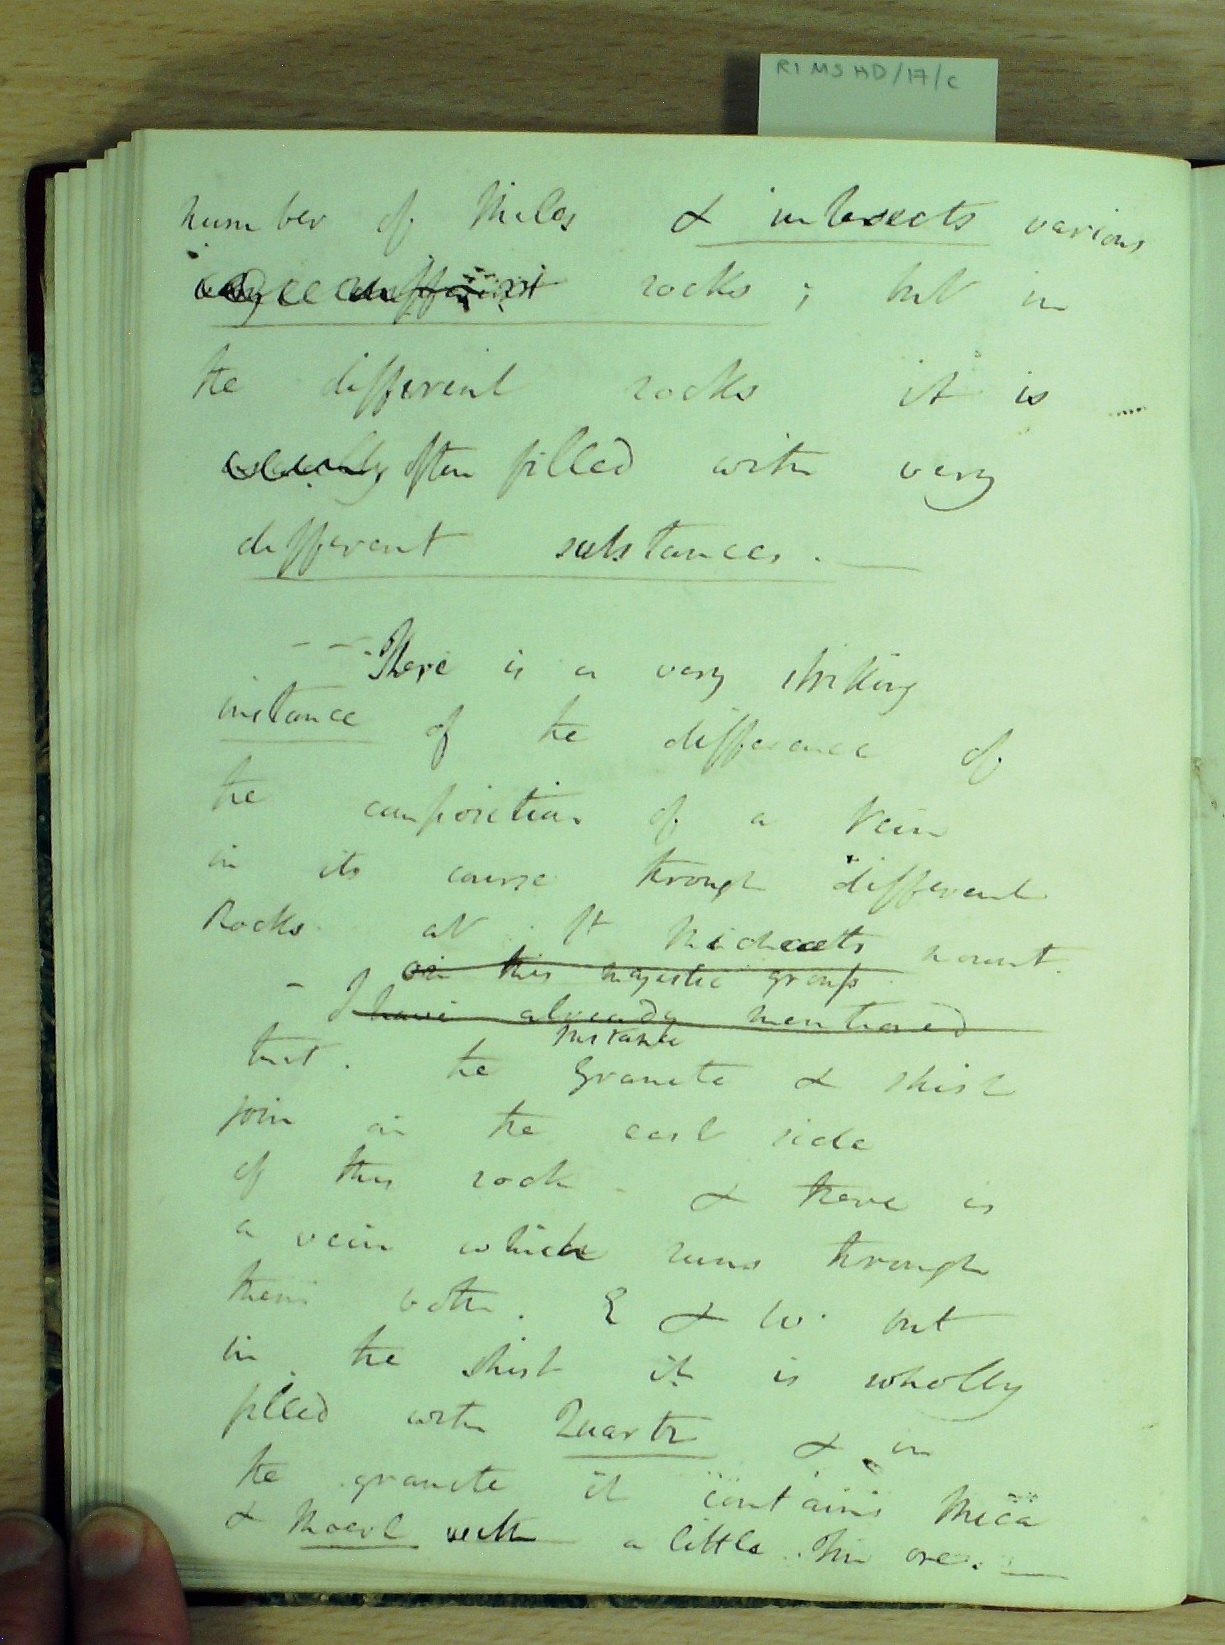 RI MS HD/17/c
number of Miles & intersects various
rocks; but in
the different rocks it is
usually often filled with very
different substances. —
-- There is a very striking
instance of the difference of
the composition of a Vein
in its course through different
Rocks at St Michaels mount.
on this majestic group
- I have already mentioned
instance
that. the Granite & shist
join on the east side
of this rock - & there is
a vein which runs through
them both. E & W. but
in the shist it is wholly
filled with Quartz & in
the granite it contains Mica
& with a little Tin ore. —